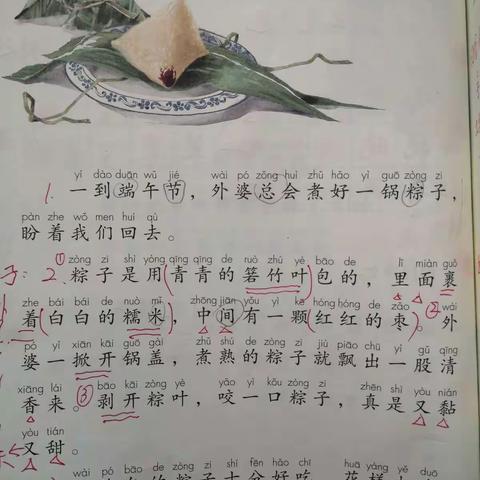 yí dào duān wǔ jié wài pó zǒng huì zhǔ hǎo yì guō zòng zi
1. 一到端午节，外婆总会煮好一锅粽子，
pàn zhe wǒ men huí qù
盼着我们回去。
zòng zi shì yòng qīng qīng de ruò zhú yè bāo de lǐ miàn guǒ
子: 2. ① 粽子是用(青青的箬竹叶)包的，里面裹
zhe bái bái de nuò mǐ zhōng jiān yǒu yì kē hóng hóng de zǎo wài
着(白白的糯米)，中间有一颗(红红的枣)。② 外
pó yì xiān kāi guō gài zhǔ shú de zòng zi jiù piāo chū yì gǔ qīng
婆一掀开锅盖，煮熟的粽子就飘出一股清
xiāng lái bāo kāi zòng yè yǎo yì kǒu zòng zi zhēn shì yòu nián
香来。③ 剥开粽叶，咬一口粽子，真是又黏
yòu tián
又甜。
wài pó bāo de zòng zi shí fēn hǎo chī huā yàng yě duō